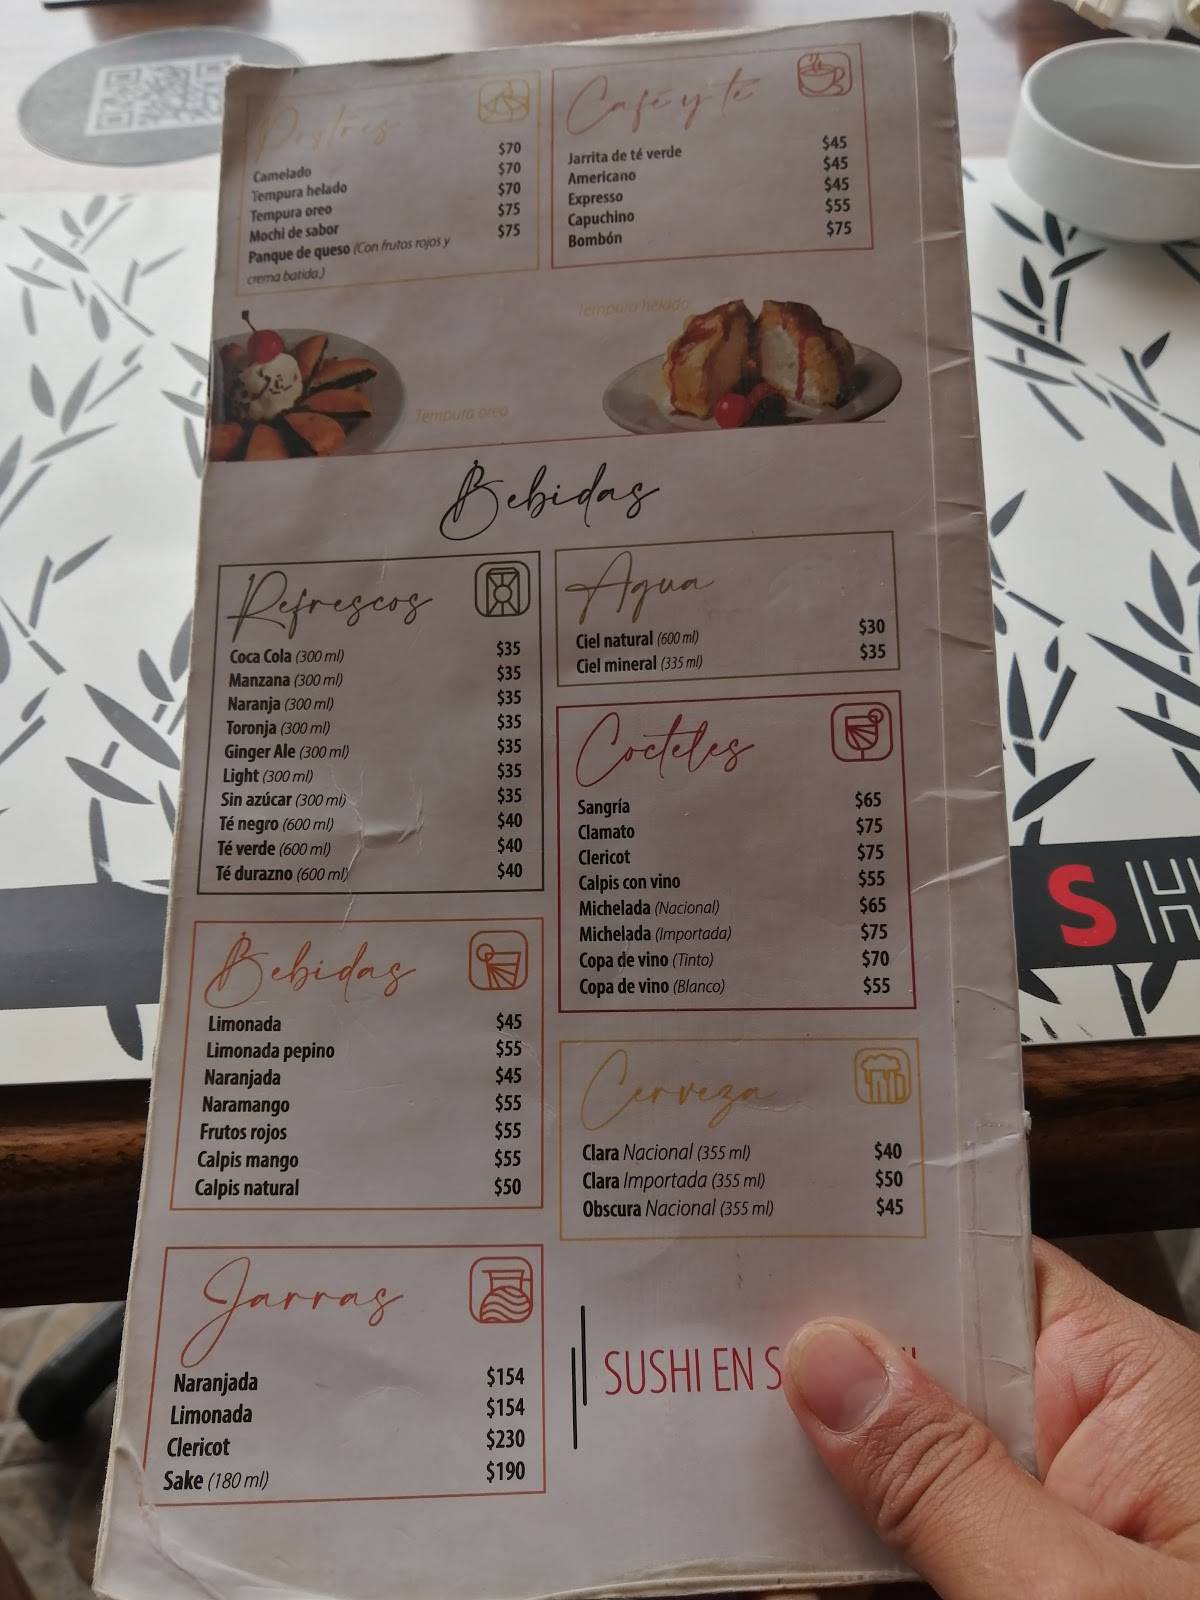 Postres
Camelado $70
Tempura helado $70
Tempura oreo $70
Mochi de sabor $75
Panque de queso (Con frutos rojos y $75
crema batida.)
Café y té
Jarrita de té verde $45
Americano $45
Expresso $45
Capuchino $55
Bombón $75
Tempura helado
Tempura oreo
Bebidas
Refrescos
Coca Cola (300 ml) $35
Manzana (300 ml) $35
Naranja (300 ml) $35
Toronja (300 ml) $35
Ginger Ale (300 ml) $35
Light (300 ml) $35
Sin azúcar (300 ml) $35
Té negro (600 ml) $40
Té verde (600 ml) $40
Té durazno (600 ml) $40
Agua
Ciel natural (600 ml) $30
Ciel mineral (335 ml) $35
Cocteles
Sangría $65
Clamato $75
Clericot $75
Calpis con vino $55
Michelada (Nacional) $65
Michelada (Importada) $75
Copa de vino (Tinto) $70
Copa de vino (Blanco) $55
Bebidas
Limonada $45
Limonada pepino $55
Naranjada $45
Naramango $55
Frutos rojos $55
Calpis mango $55
Calpis natural $50
Cerveza
Clara Nacional (355 ml) $40
Clara Importada (355 ml) $50
Obscura Nacional (355 ml) $45
Jarras
Naranjada $154
Limonada $154
Clericot $230
Sake (180 ml) $190
SUSHI EN S
SH